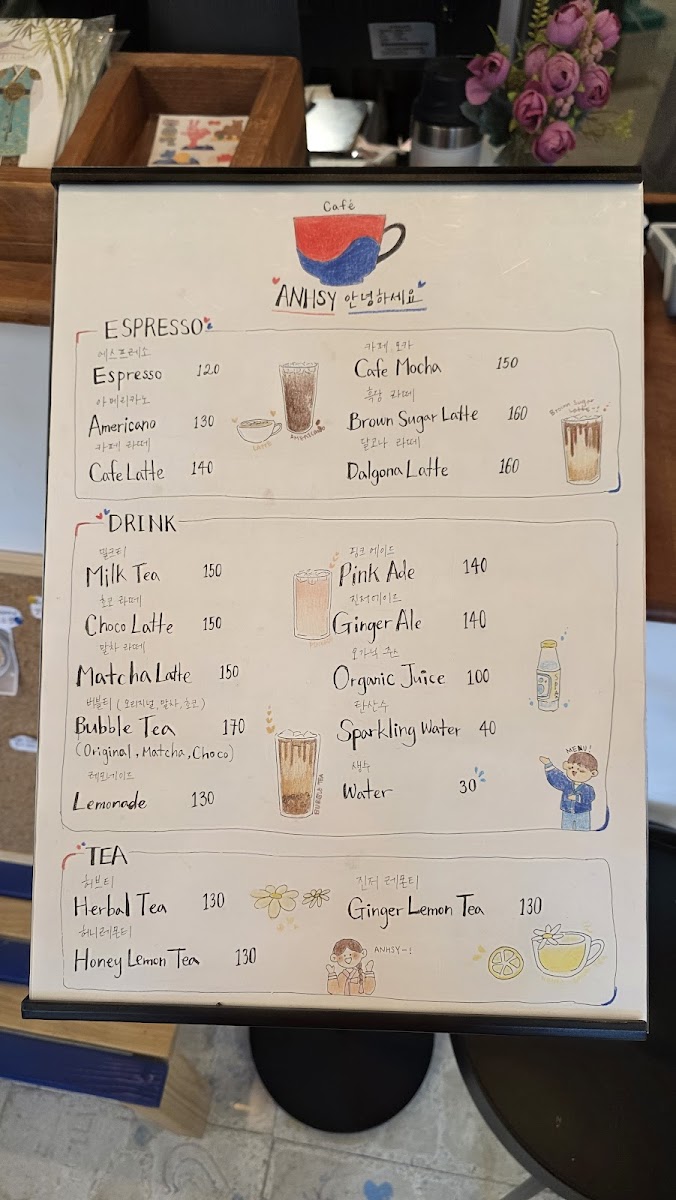 Café
ANHSY 안녕하세요
ESPRESSO
에스프레소
Espresso 120
아메리카노
Americano 130
카페 라떼
Cafe Latte 140
LATTE
AMERICANO
카페 모카
Cafe Mocha 150
흑당 라떼
Brown Sugar Latte 160
달고나 라떼
Dalgona Latte 160
Brown Sugar
Latte~!
DRINK
밀크티
Milk Tea 150
초코 라떼
Choco Latte 150
말차 라떼
Matcha Latte 150
버블티 (오리지널, 말차, 초코)
Bubble Tea 170
(Original, Matcha, Choco)
레모네이드
Lemonade 130
BUBBLE TEA
핑크 에이드
Pink Ade 140
진저에이드
Ginger Ale 140
오가닉 주스
Organic Juice 100
탄산수
Sparkling Water 40
생수
Water 30
MENU!
TEA
허브티
Herbal Tea 130
허니레몬티
Honey Lemon Tea 130
진저 레몬티
Ginger Lemon Tea 130
ANHSY~!